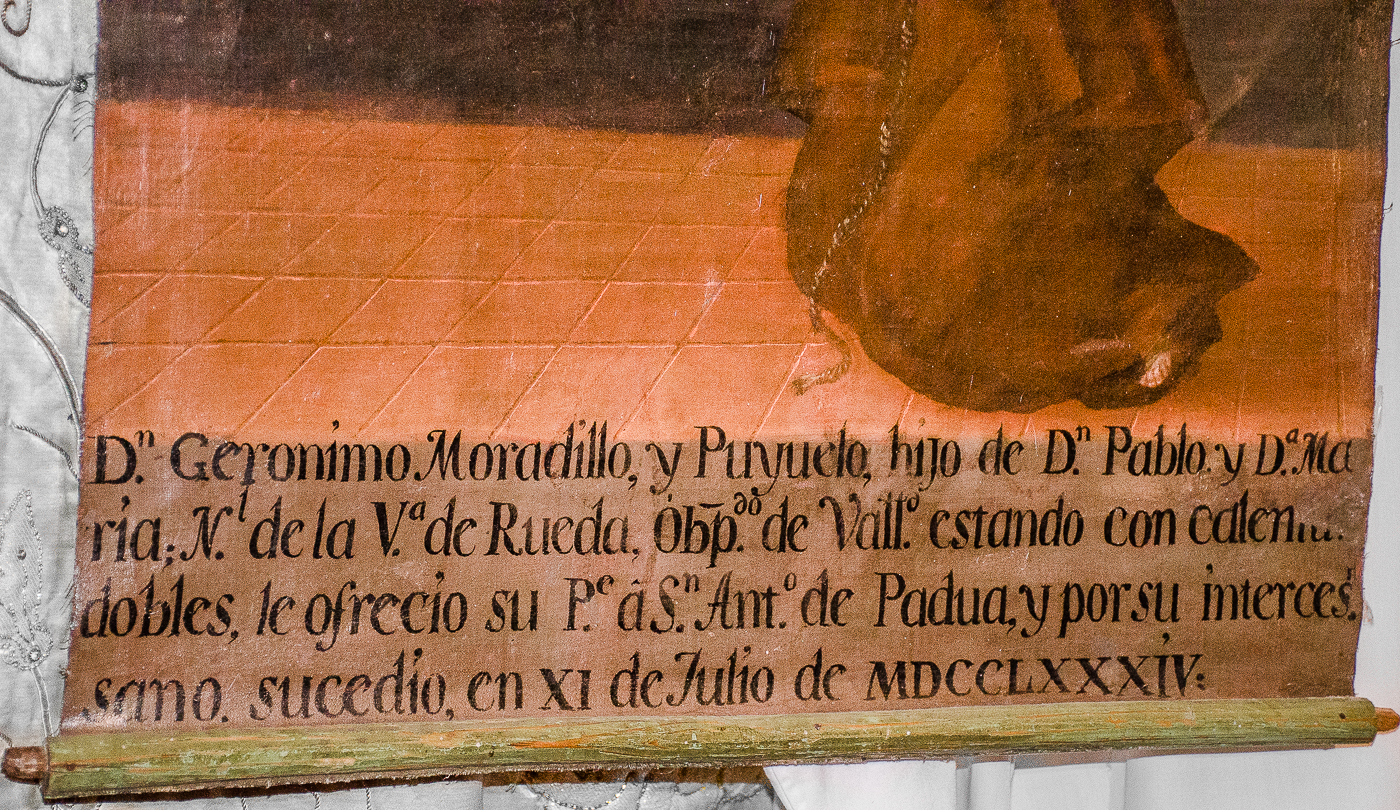 D.ⁿ Geronimo Moradillo, y Puyuelo, hijo de D.ⁿ Pablo. y D.ª Ma
ria; N.ˡ de la V.ª de Rueda, Obp̄.ᵈᵒ de Vall.ᵒ estando con
dobles, le ofrecio su P.ᵉ â S.ⁿ Ant.º de Padua, y por su interces.ⁿ
sano. sucedio, en XI de Julio de MDCCLXXXIV.